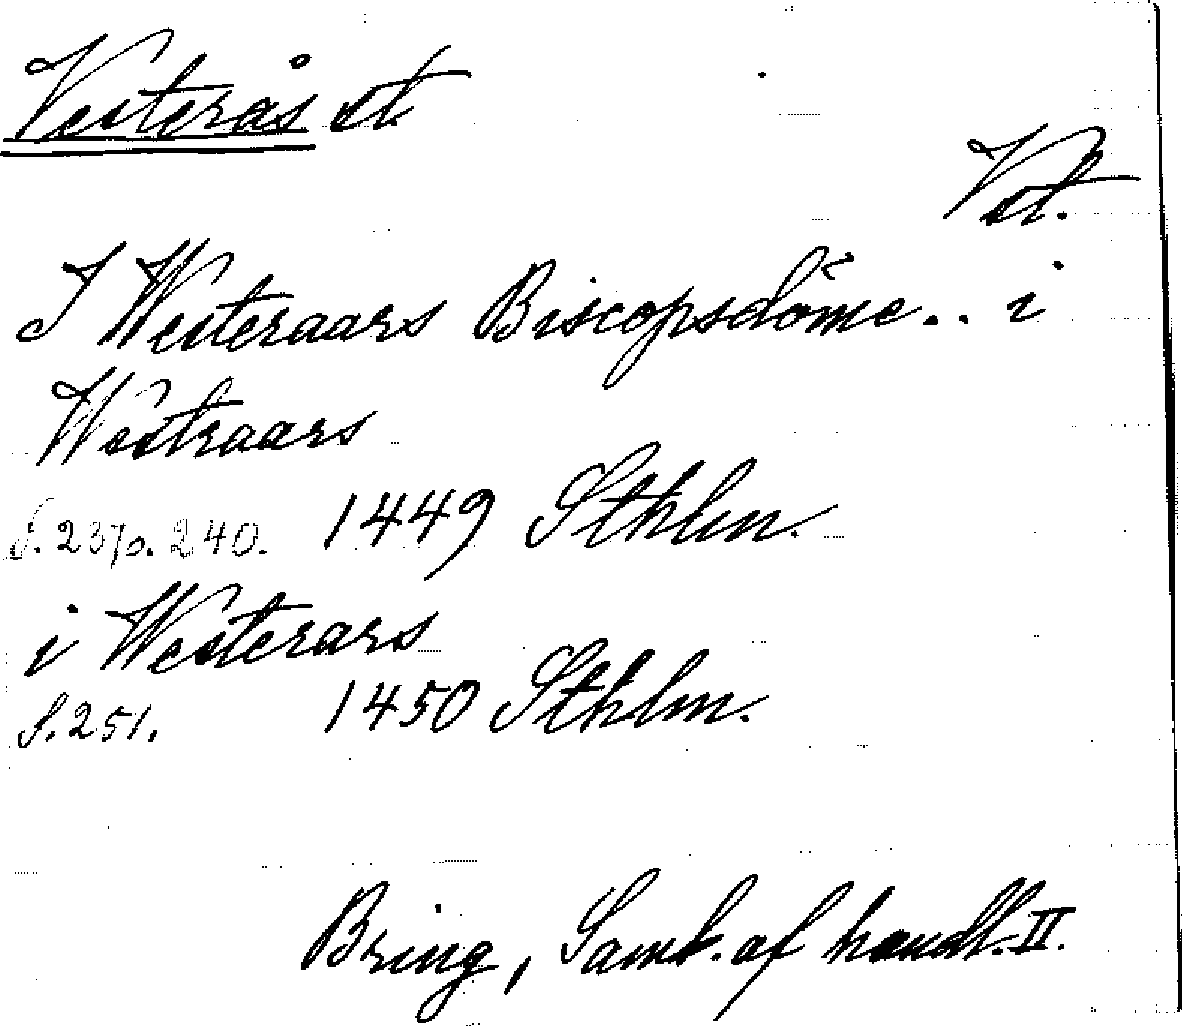 Vesterås st.
Vst.
I Westeraars Biscopsdöme.. i
Westraars
S. 237 o. 240. 1449 Sthlm.
i Westerars
S. 251. 1450 Sthlm.
Bring, Saml. af handl. II.